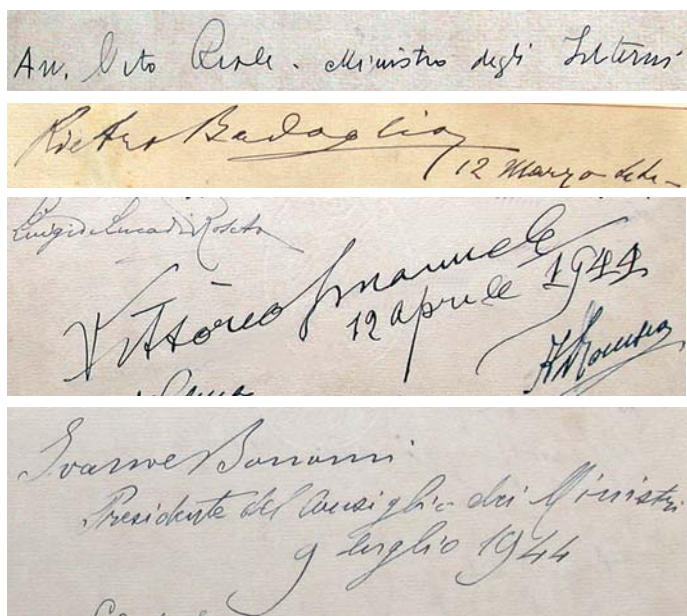 Avv. Vito Reale. Ministro degli Interni
Pietro Badoglio
12 Marzo
Luigi de Luca di Roseto
Vittorio Emanuele
12 aprile 1944
Ivanoe Bonomi
Presidente del Consiglio dei Ministri
9 luglio 1944